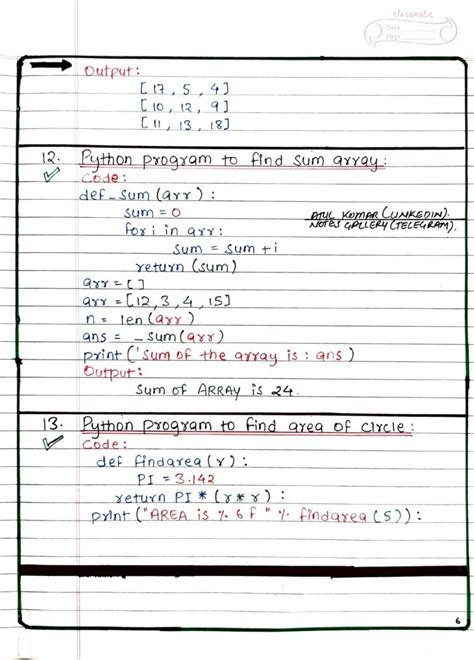 classmate
Date
Page
Output:
[17, 5, 4]
[10, 12, 9]
[11, 13, 18]
12. Python program to find sum array:
Code:
def _sum (arr):
sum = 0
for i in arr:
sum = sum + i
return (sum)
ATUL KUMAR (LINKEDIN).
NOTES GALLERY (TELEGRAM).
arr = [ ]
arr = [12, 3, 4, 15]
n = len (arr)
ans = _sum (arr)
print ('Sum of the array is : ans )
Output:
Sum of ARRAY is 24.
13. Python program to find area of circle:
Code:
def findarea (r):
PI = 3.142
return PI * (r*r):
print ("AREA is %.6f " % findarea (5)):
6